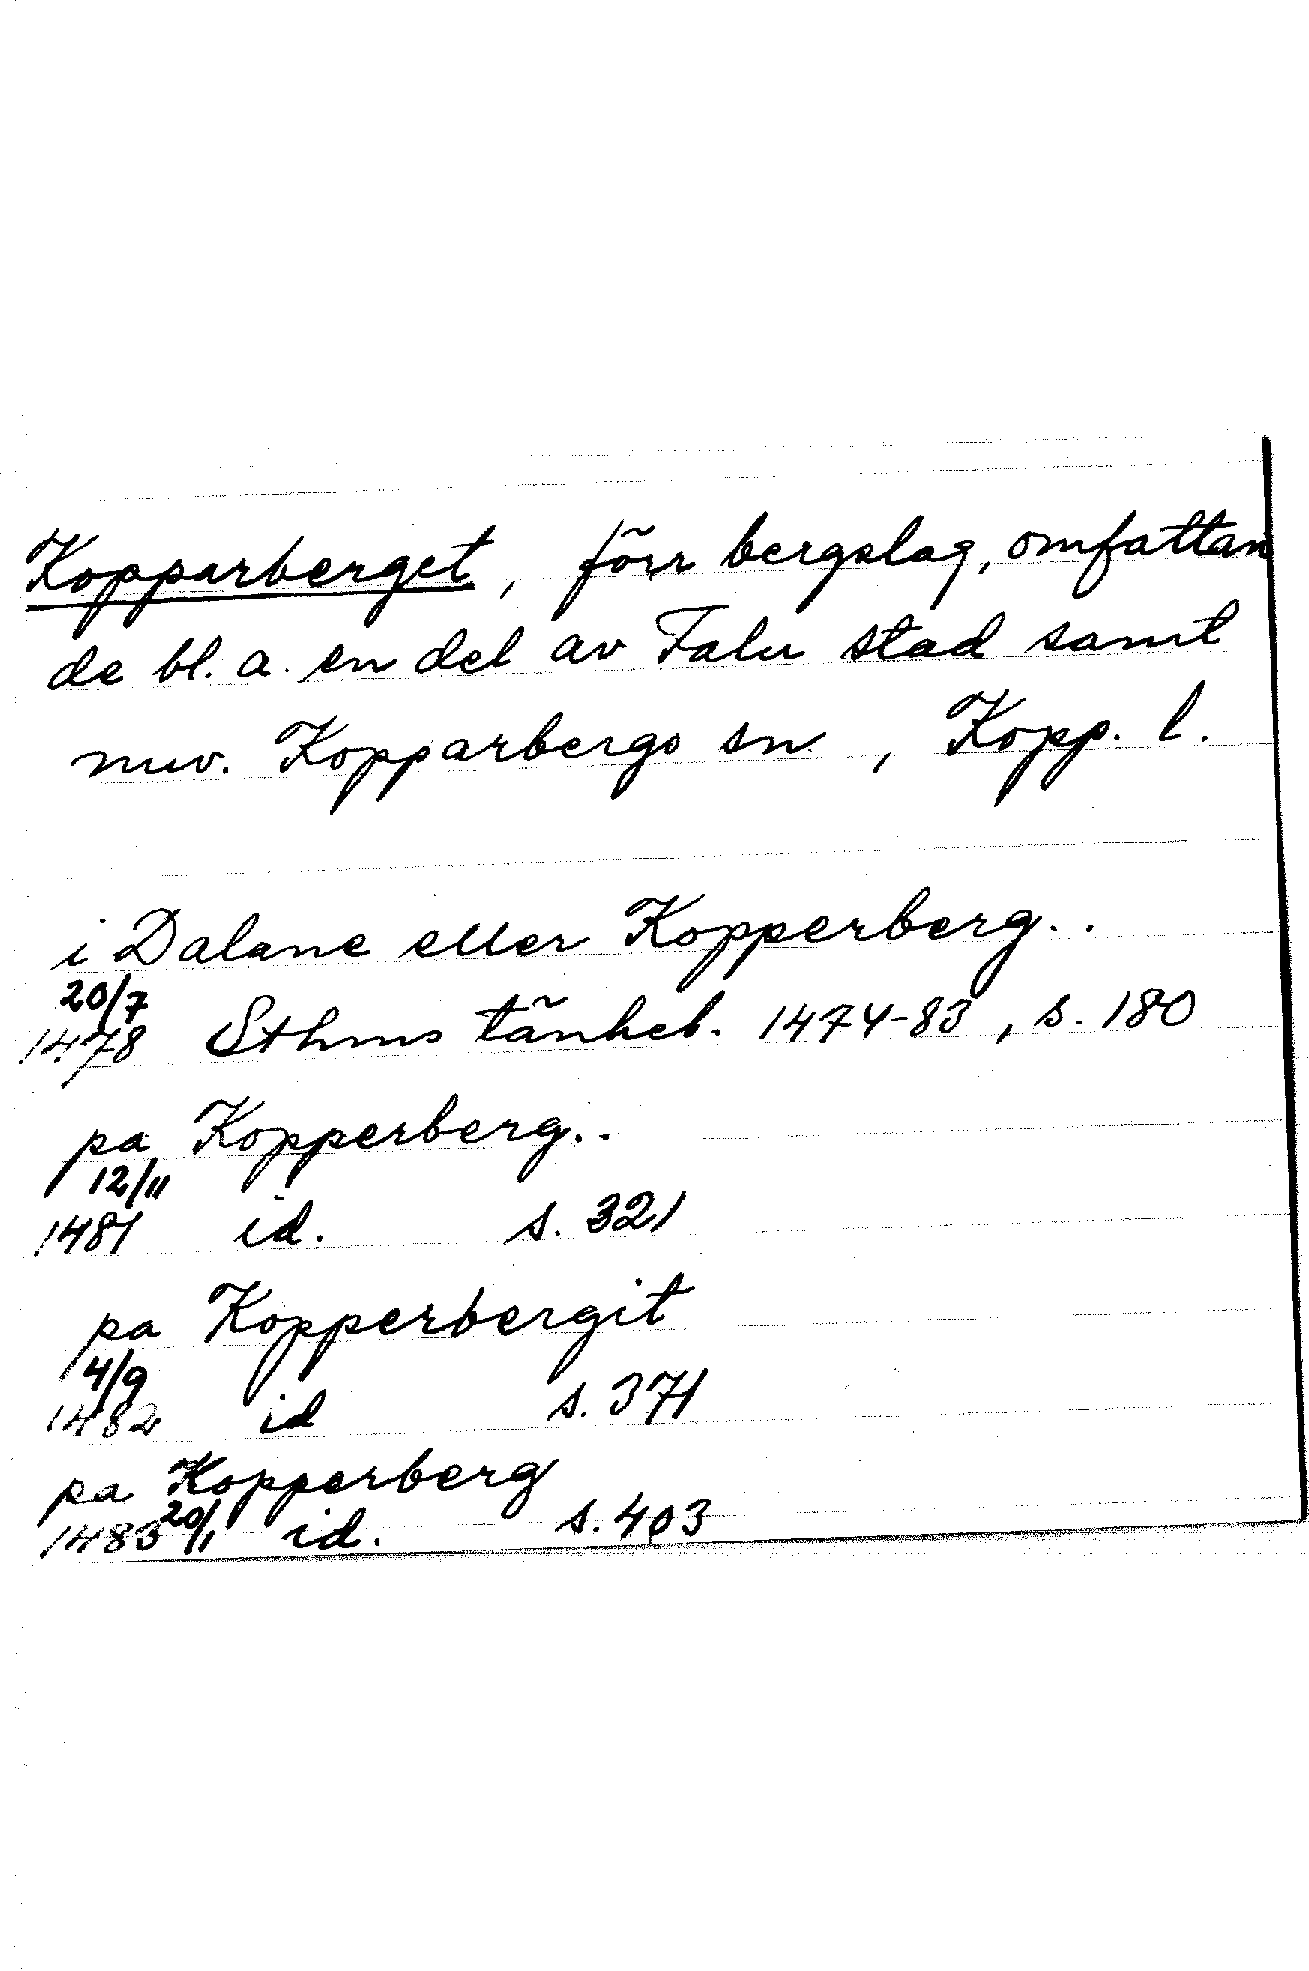 Kopparberget, förr bergslag, omfattan
de bl. a. en del av Falu stad samt
nuv. Kopparbergs sn, Kopp. l.
i Dalane eller Kopperberg..
20/7
1478 Sthms tänkeb. 1474-83, s. 180
pa Kopperberg..
12/11
1481 id. s. 321
pa Kopperbergit
4/9
1482 id s. 371
pa Kopperberg
1483 20/1 id. s. 403